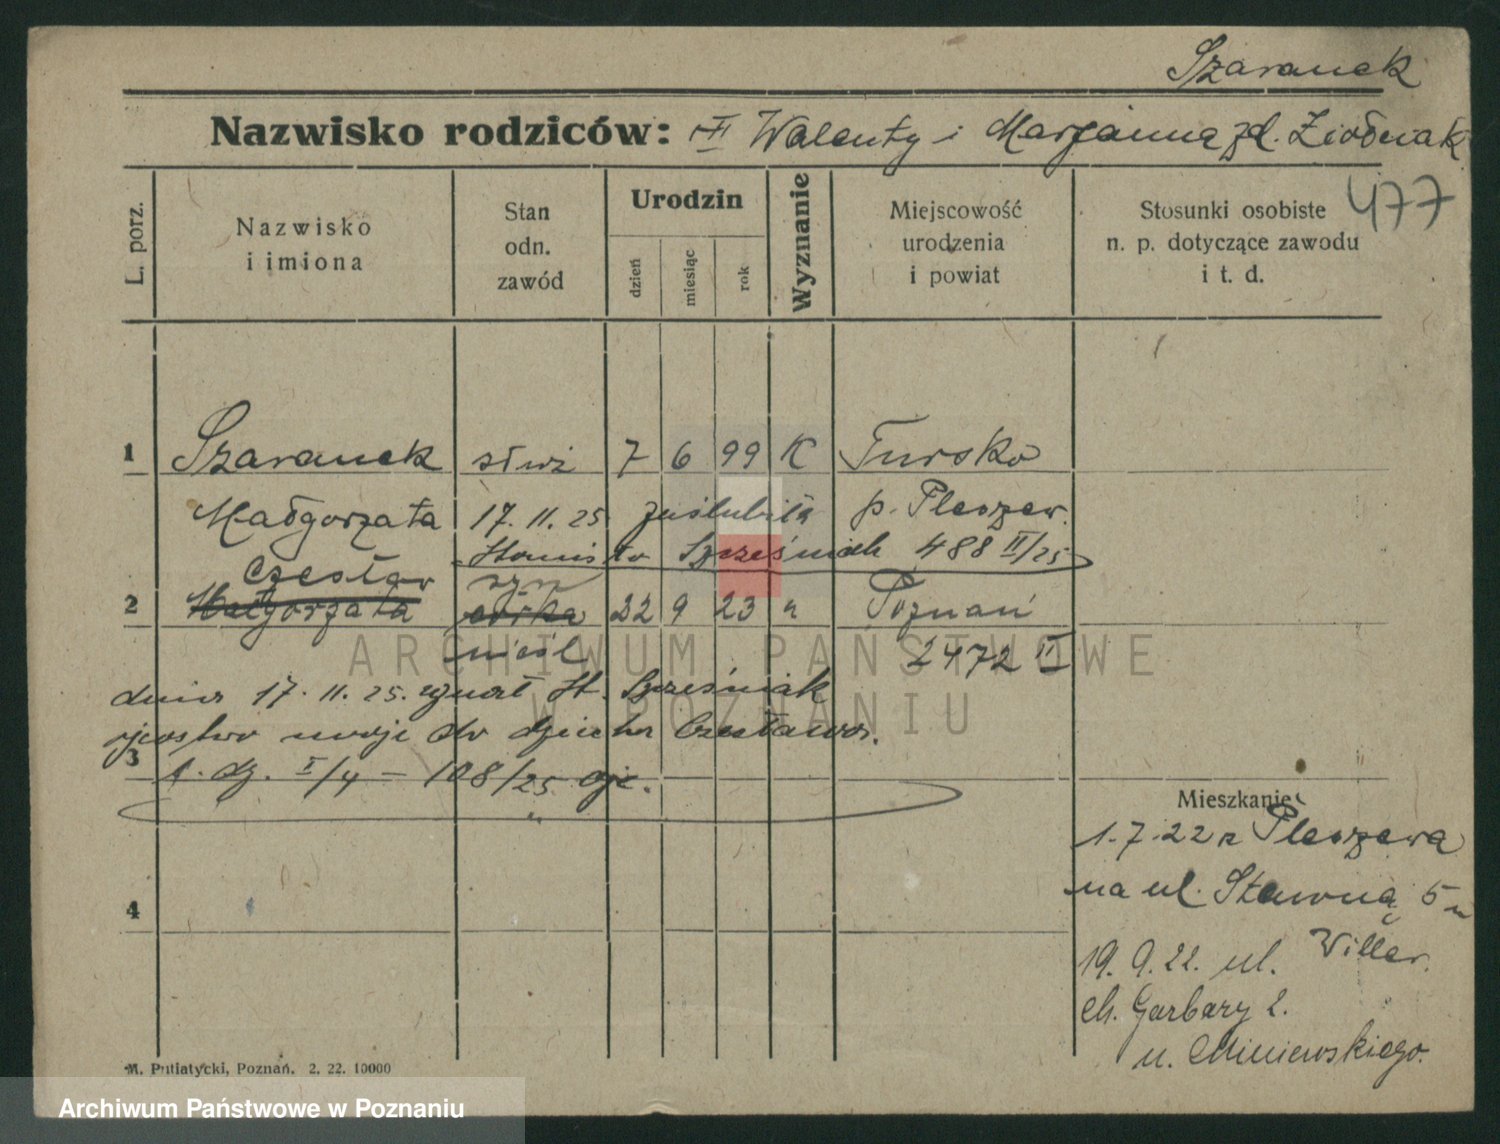 Szaranek
Nazwisko rodziców: Walenty i Marjanna zd. Ziółniak
477
L. porz.
Nazwisko
i imiona
Stan
odn.
zawód
Urodzin
dzień
miesiąc
rok
Wyznanie
Miejscowość
urodzenia
i powiat
Stosunki osobiste
n. p. dotyczące zawodu
i t. d.
1 Szaranek służ 7 6 99 K Tursko
Małgorzata 17. 11. 25 zaślubiła p. Pleszew.
Stanisł. Szcześniak 488 II/25
Czesław syn
2 Małgorzata córka 22 9 23 " Poznań
nieśl 2472 II
dnia 17. 11. 25. uznał St. Szcześniak
ojcostwo swoje do dziecka Czesława.
3
1. dz. I/4 - 108/25 ojc.
4
Mieszkanie
1.7.22 z Pleszewa
na ul. Stawną 5 u
Willer.
19. 9. 22. ul.
Ch. Garbary 2.
u. Miniewskiego.
M. Putiatycki, Poznań. 2. 22. 10000
ARCHIWUM PAŃSTWOWE
W POZNANIU
Archiwum Państwowe w Poznaniu